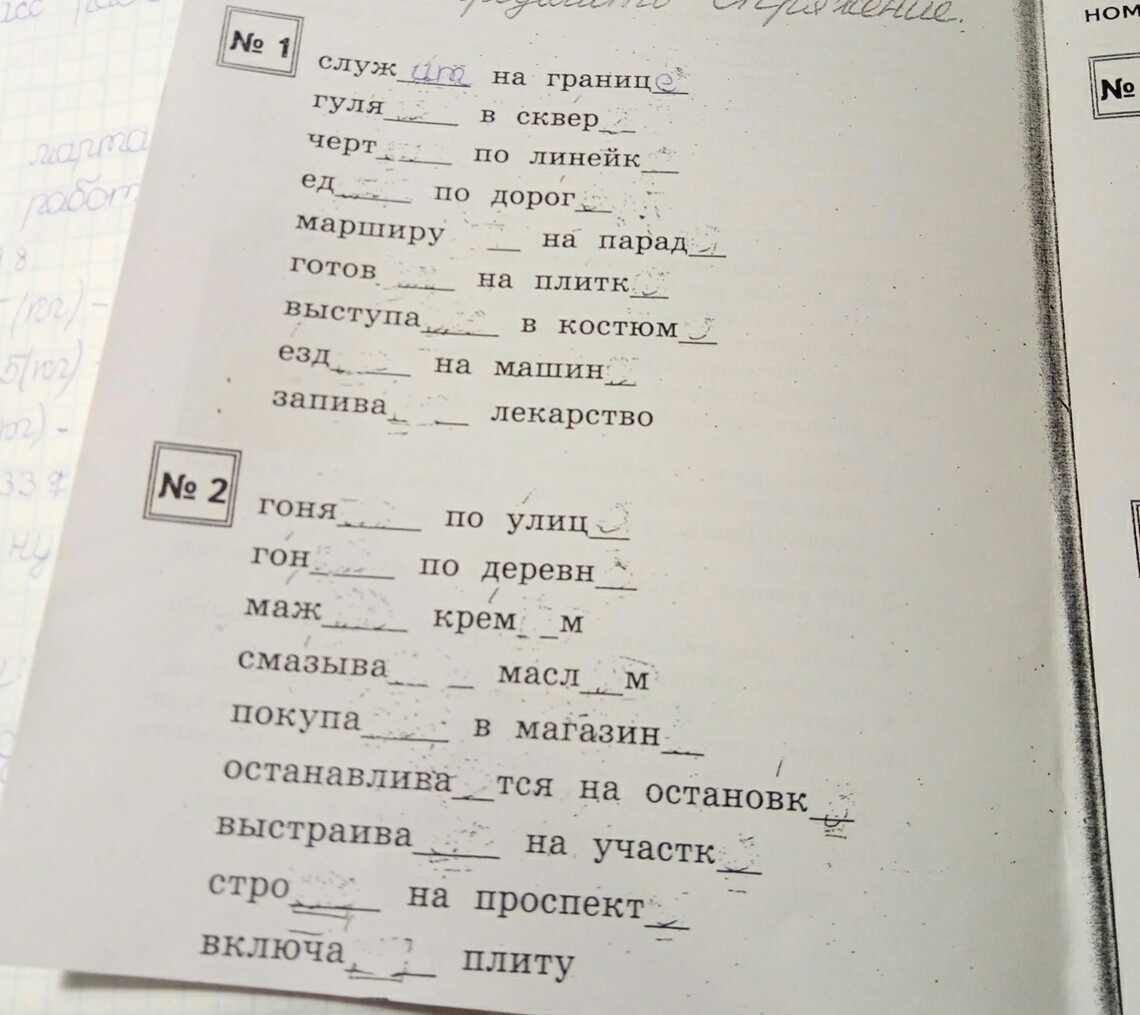 спряжение.
№ 1
служ ит на границе
гуля____ в сквер__
черт____ по линейк__
ед____ по дорог__
марширу __ на парад__
готов ___ на плитк__
выступа____ в костюм__
езд____ на машин__
запива_ __ лекарство
№ 2
гоня____ по улиц__
гон____ по деревн__
маж____ крем_ _м
смазыва__ _ масл__м
покупа____ в магазин__
останавлива__тся на остановк__
выстраива____ на участк__
стро____ на проспект__
включа____ плиту
марта
работ
5(юг)
337
ну
ном
№